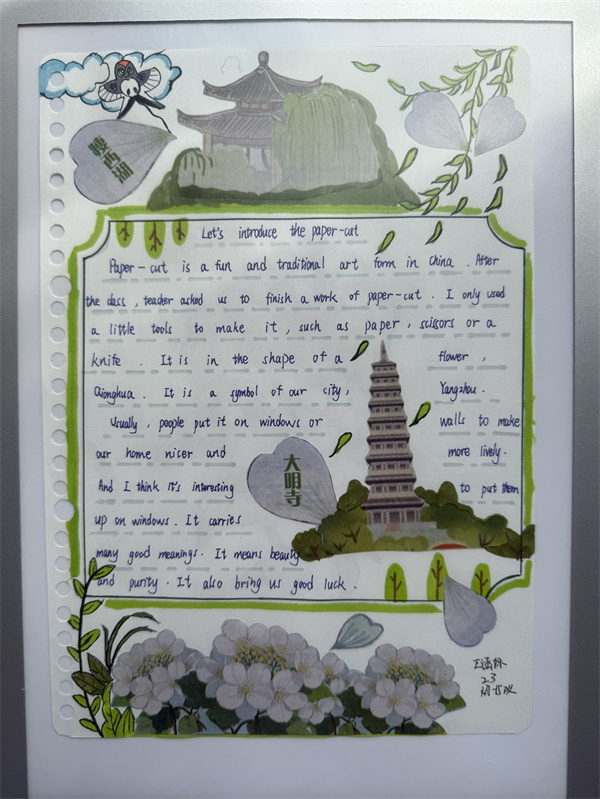 瘦西湖
Let's introduce the paper-cut
Paper-cut is a fun and traditional art form in China. After
the class, teacher asked us to finish a work of paper-cut. I only used
a little tools to make it, such as paper, scissors or a
knife. It is in the shape of a flower,
Qionghua. It is a symbol of our city, Yangzhou.
Usually, people put it on windows or walls to make
our home nicer and more lively.
大明寺
And I think it's interesting to put them
up on windows. It carries
many good meanings. It means beauty
and purity. It also bring us good luck.
23